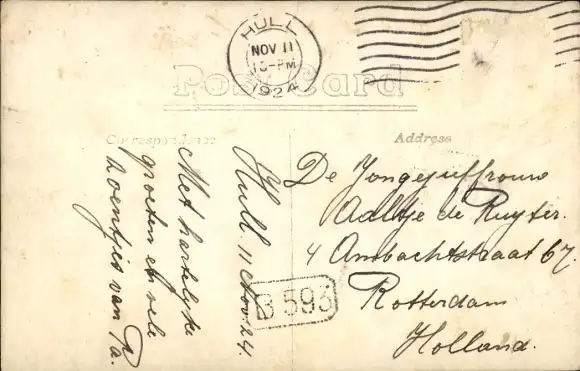 HULL
NOV 11
1924
Post Card
Correspondence
Address
Hull. 11 Nov. 24.
Met hartelijke
groeten en vele
zoentjes van Pa.
De Jongejuffrouw
Aaltje de Ruyter.
4 Ambachtstraat 67.
Rotterdam
Holland.
B 593